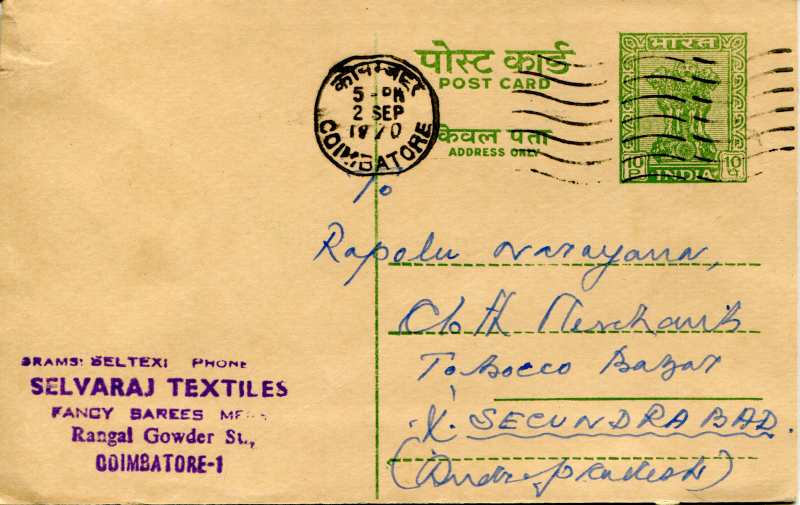 पोस्ट कार्ड
POST CARD
केवल पता
ADDRESS ONLY
भारत
10 P
INDIA
10 पै
कोयम्बटूर
5 - PM
2 SEP
1970
COIMBATORE
To
Rapolu Narayana,
Cloth Merchants
Tobocco Bazar
X. SECUNDRABAD.
(Andhra Pradesh)
GRAMS: SELTEXI PHONE
SELVARAJ TEXTILES
FANCY SAREES
Rangai Gowder St.,
COIMBATORE-1